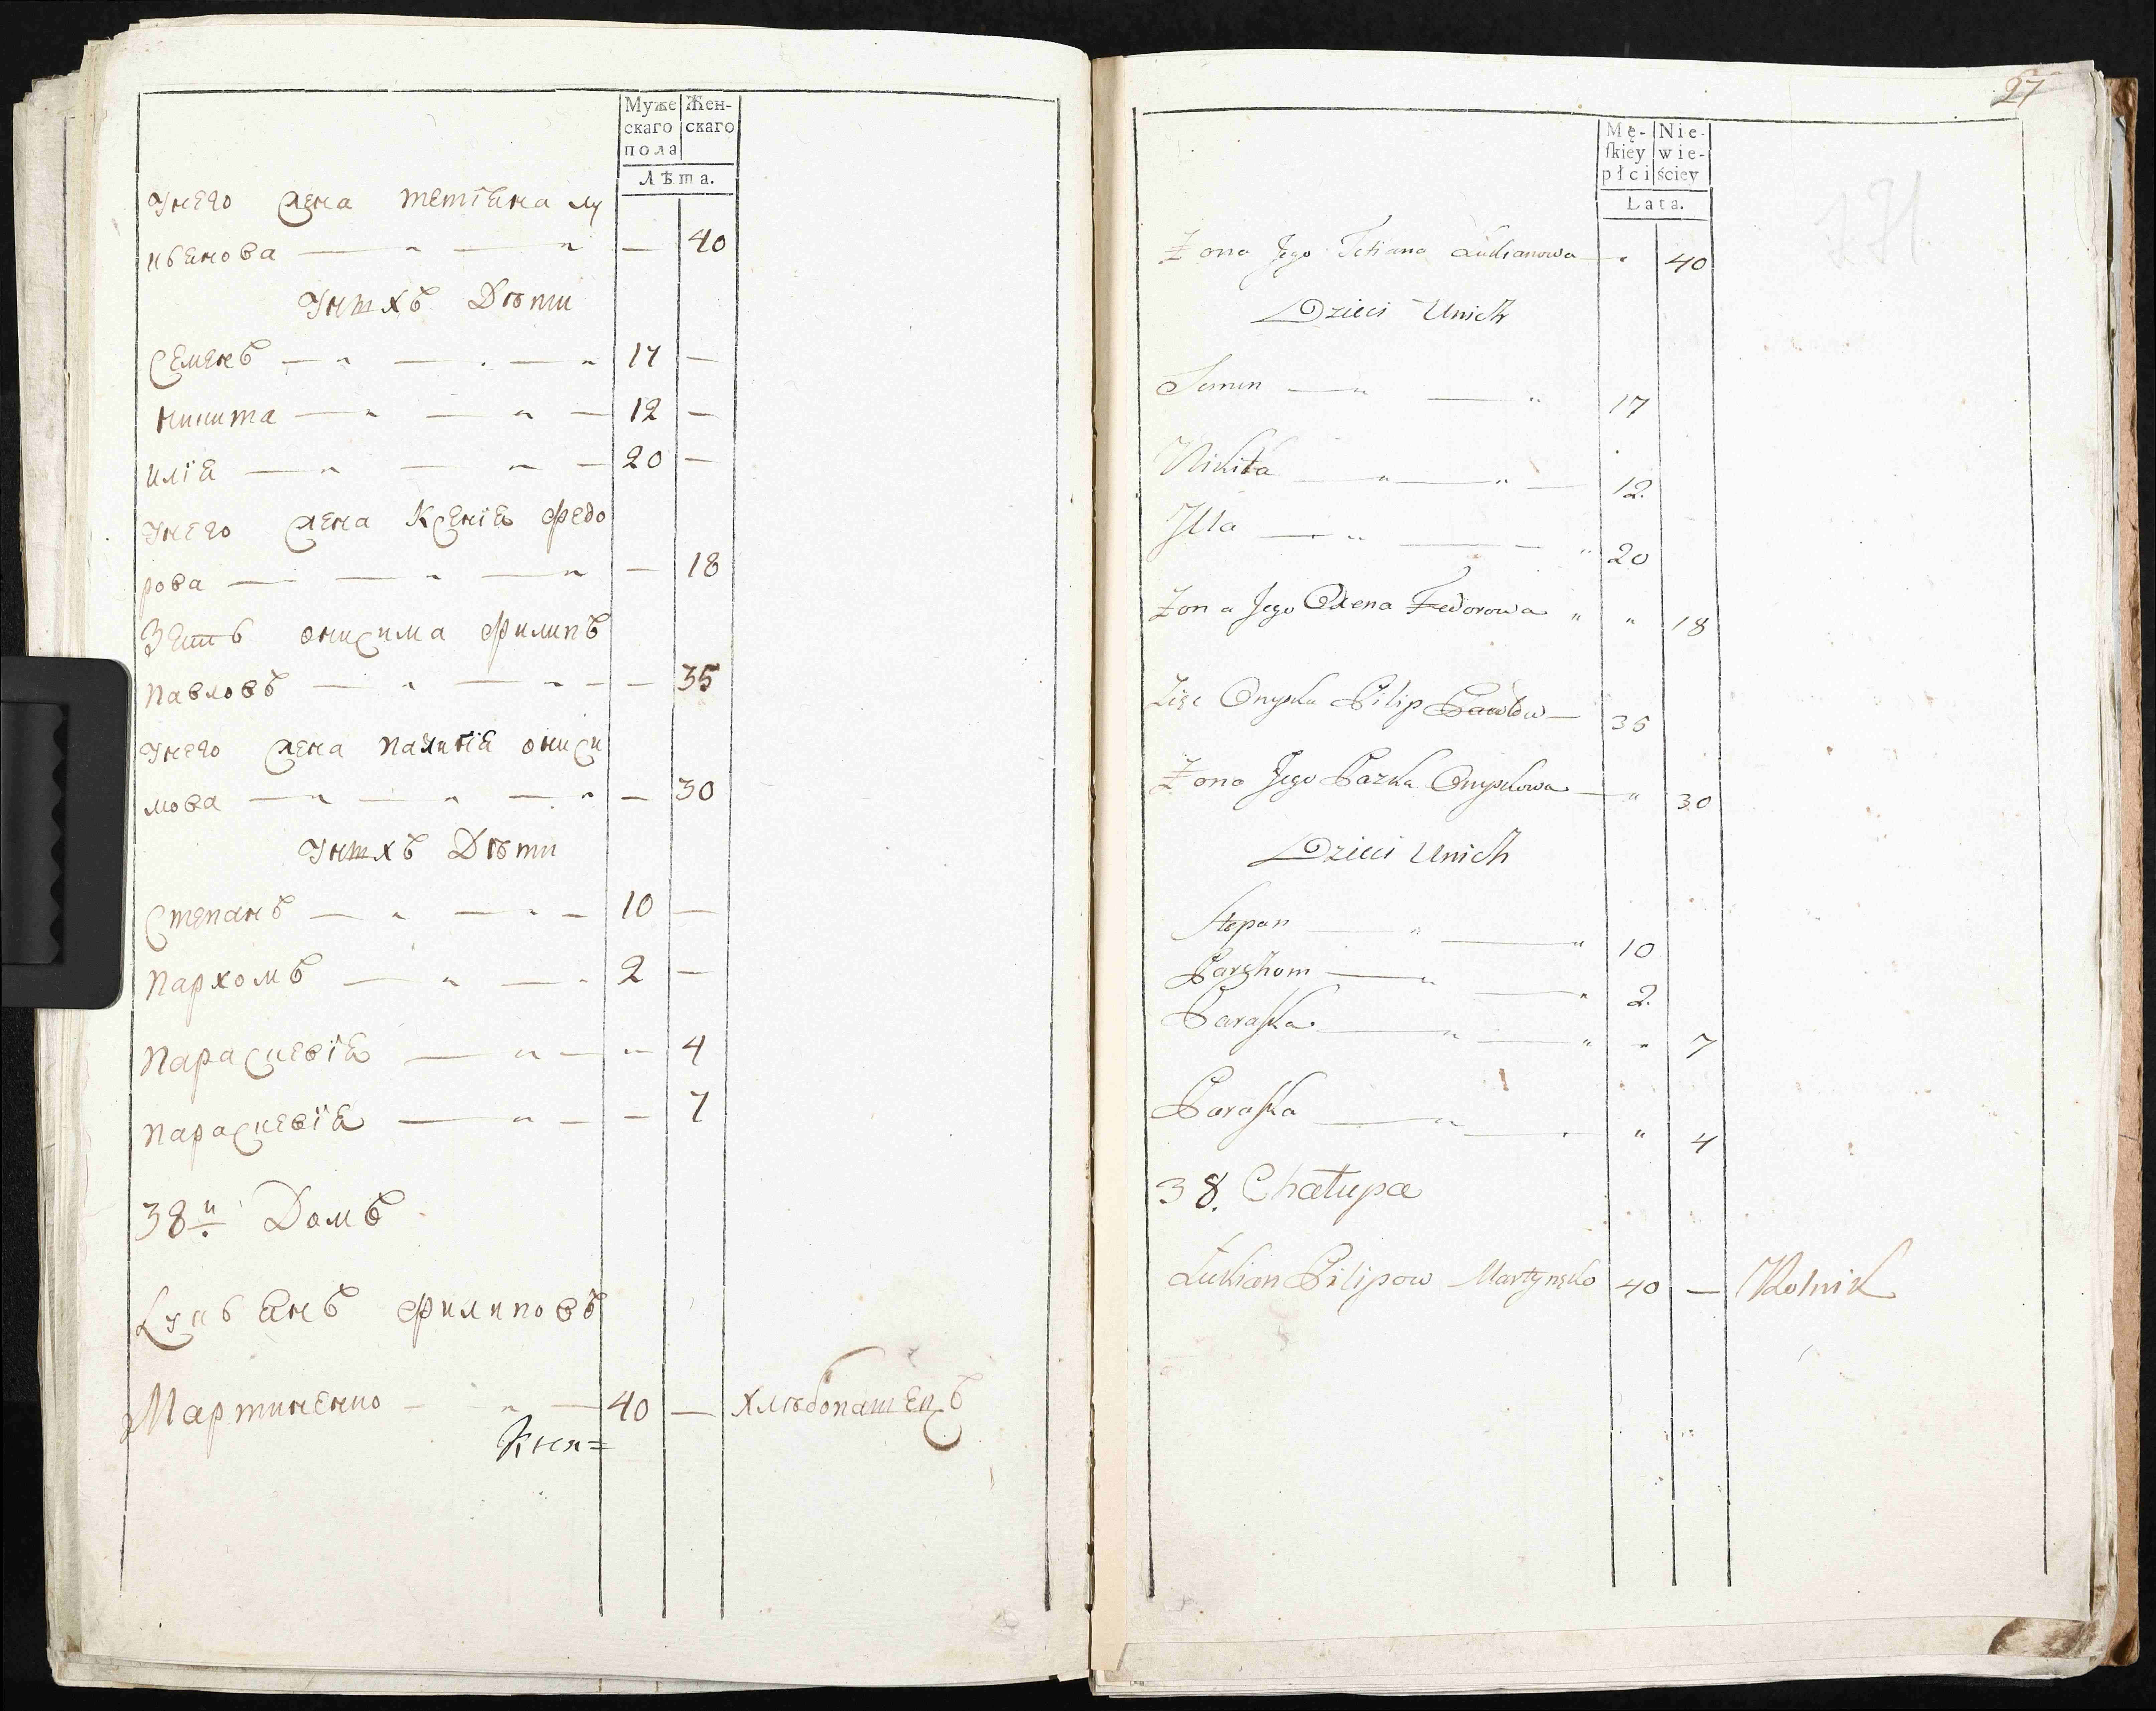 Муже
скаго
пола
Жен-
скаго
Лѣта.
Унего жена тетіяна лу
кьянова — " — " — 40
Унихъ Дѣти
Семенъ — " — . — " 17 —
никита — " — " — 12 —
илія — " — " — 20 —
Унего жена Ксенія федо
рова — — " — " — 18
Зять онисима филипъ
павловъ — " — " — — 35
Унего жена палагія ониси
мова — " — " — " — 30
Унихъ Дѣти
Степанъ — " — " — 10 —
пархомъ — " — " 2 —
параскевія — " — " 4
параскевія — " — — 7
38й Домъ
Лукьянъ филиповъ
Мартиненко — " — 40 — хлѣбопашецъ
27
Mę-
ſkiey
płci
Nie-
wie-
ściey
Lata.
Żona Jego Tetiana Lukianowa — " 40
Dzieci Unich
Semen — " — " 17
Nikita — " — " — 12.
Jlla — " — — " 20
Żona Jego Oxena Fedorowa " " 18
Zięć Onyska Pilip Pawłow — 35
Żona Jego Pazka Onyskowa — " 30
Dzieci Unich
Stepan — " — " 10
Parchom — " — " 2.
Paraſka — " — " " 7
Paraſka — " — . " 4
38. Chałupa
Łukian Pilipow Martynęko 40 — Rolnik